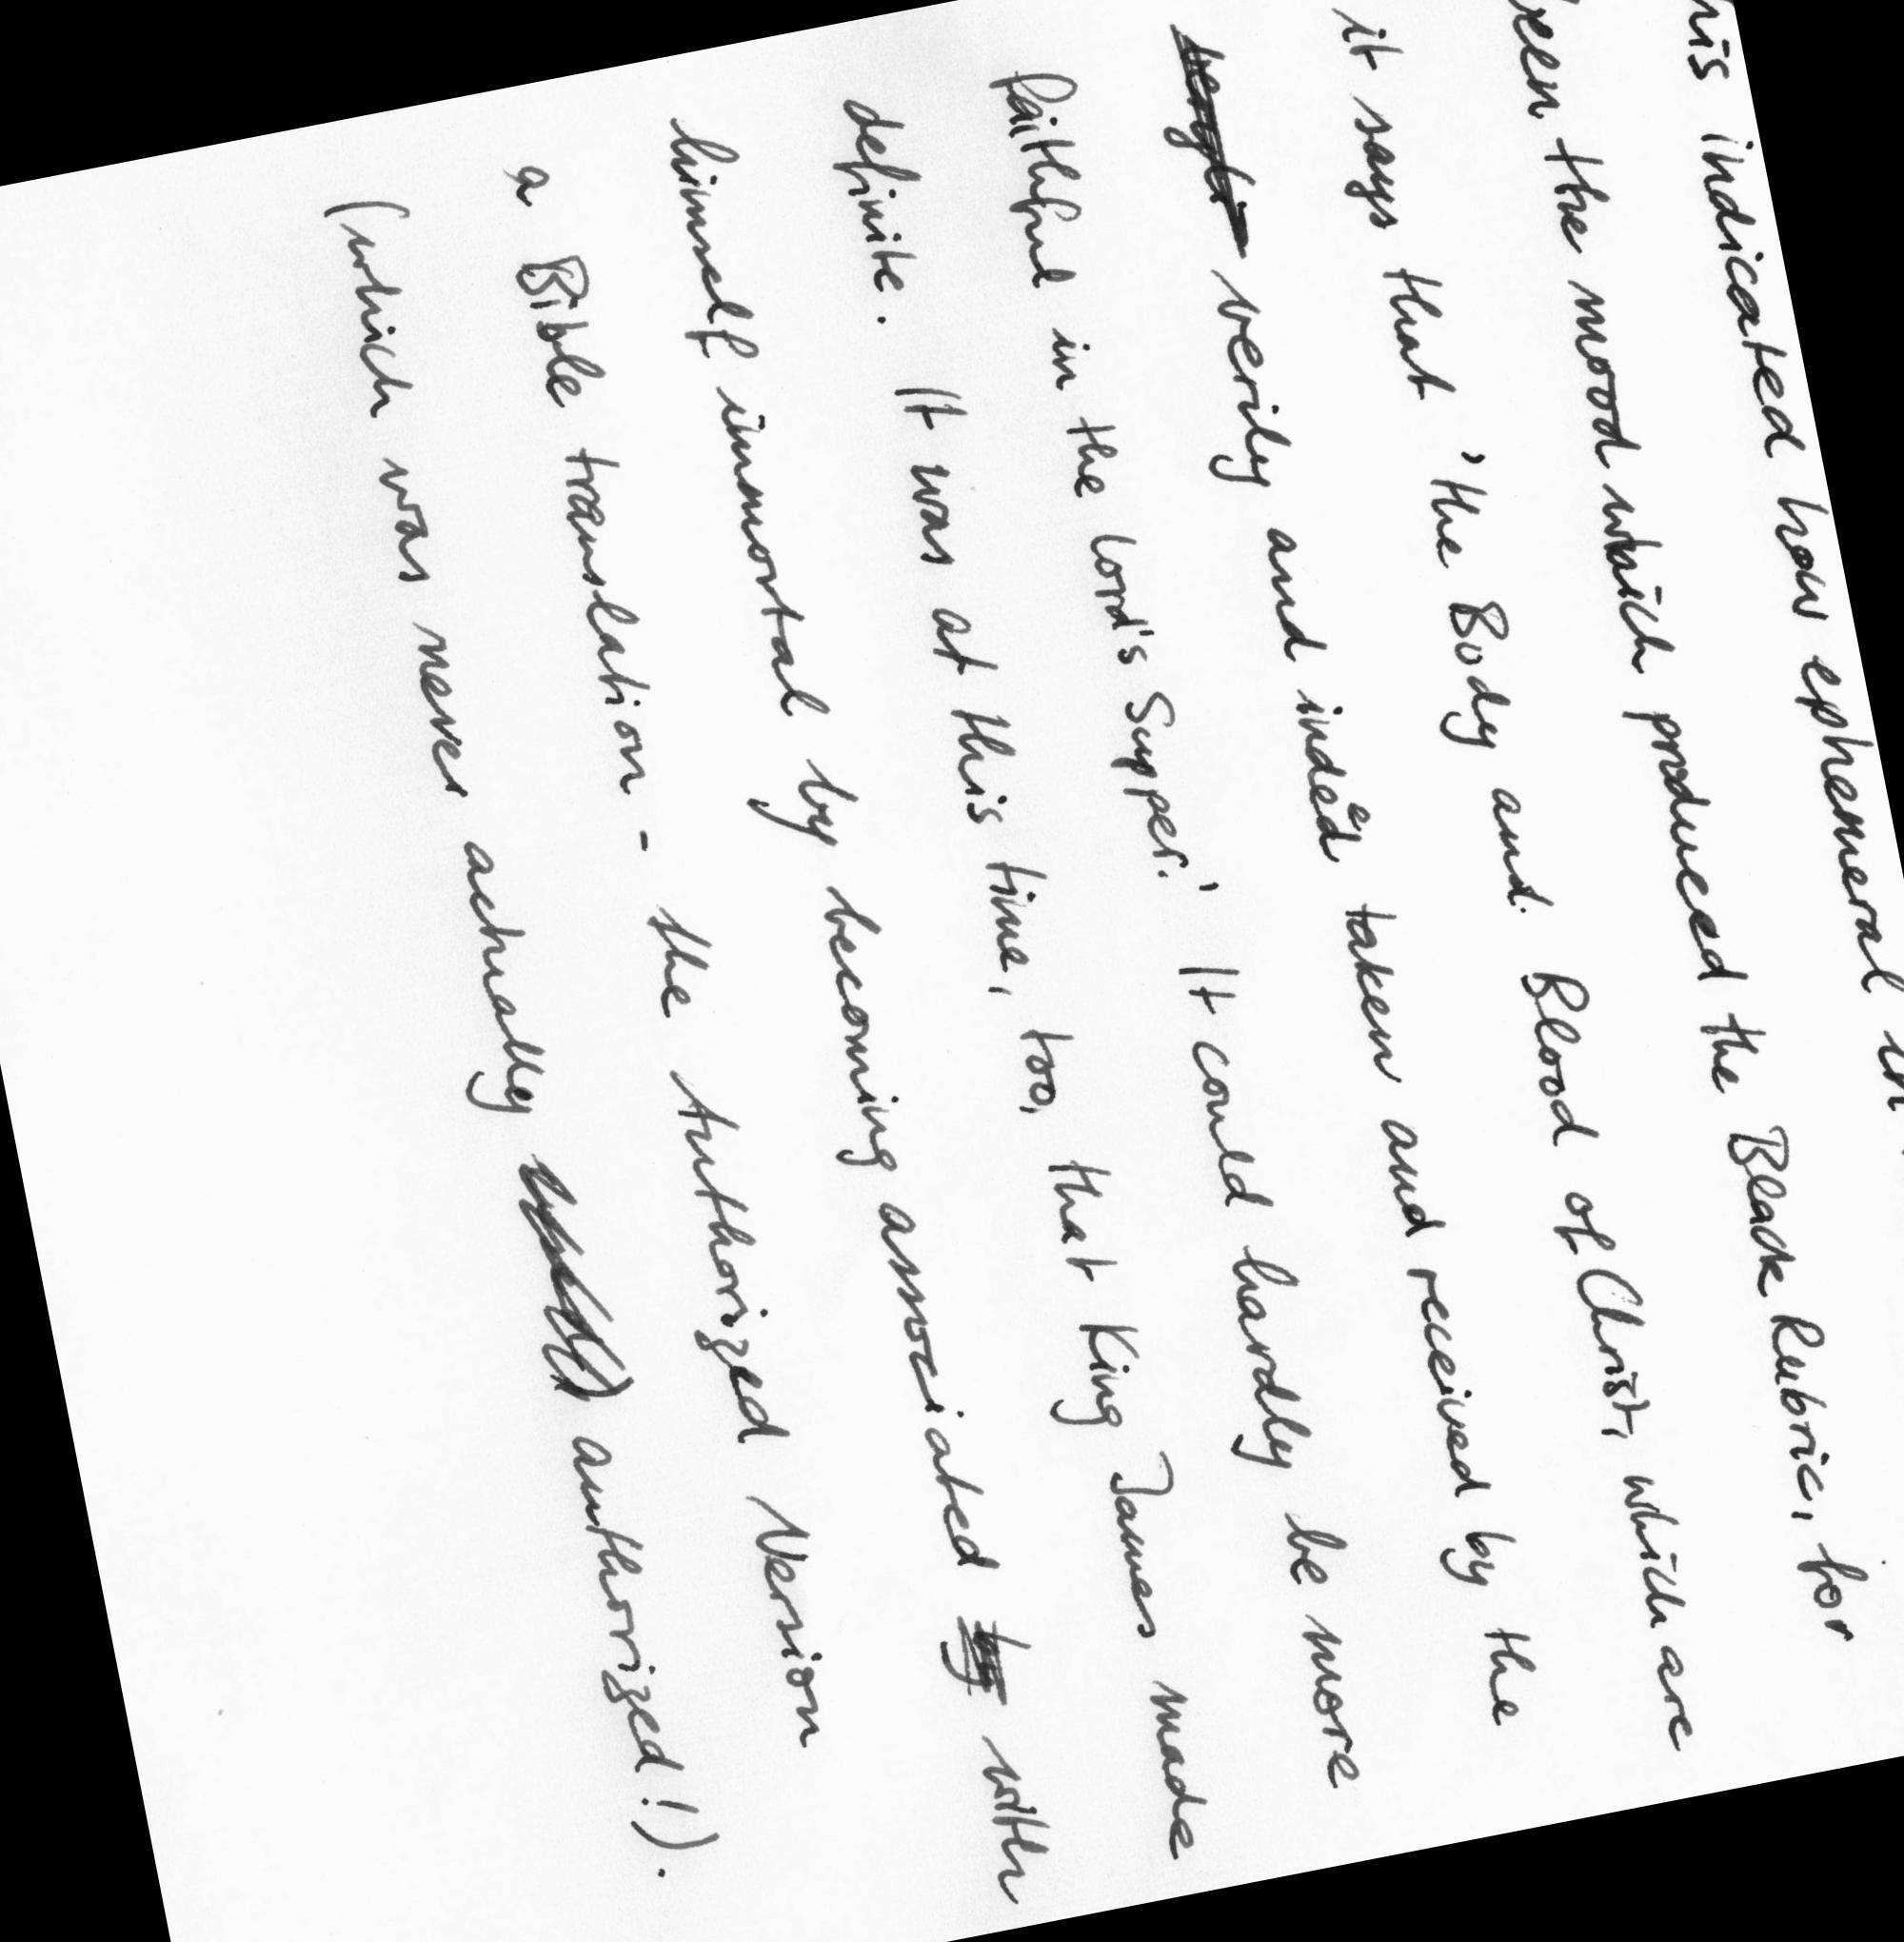 his indicated how ephemeral
been the mood which produced the Black Rubric, for
it says that 'the Body and Blood of Christ, which are
verily and indeed taken and received by the
faithful in the Lord's Supper.' It could hardly be more
definite. It was at this time, too, that King James made
himself immortal by becoming associated by with
a Bible translation - the Authorized Version
(which was never actually authorized!).